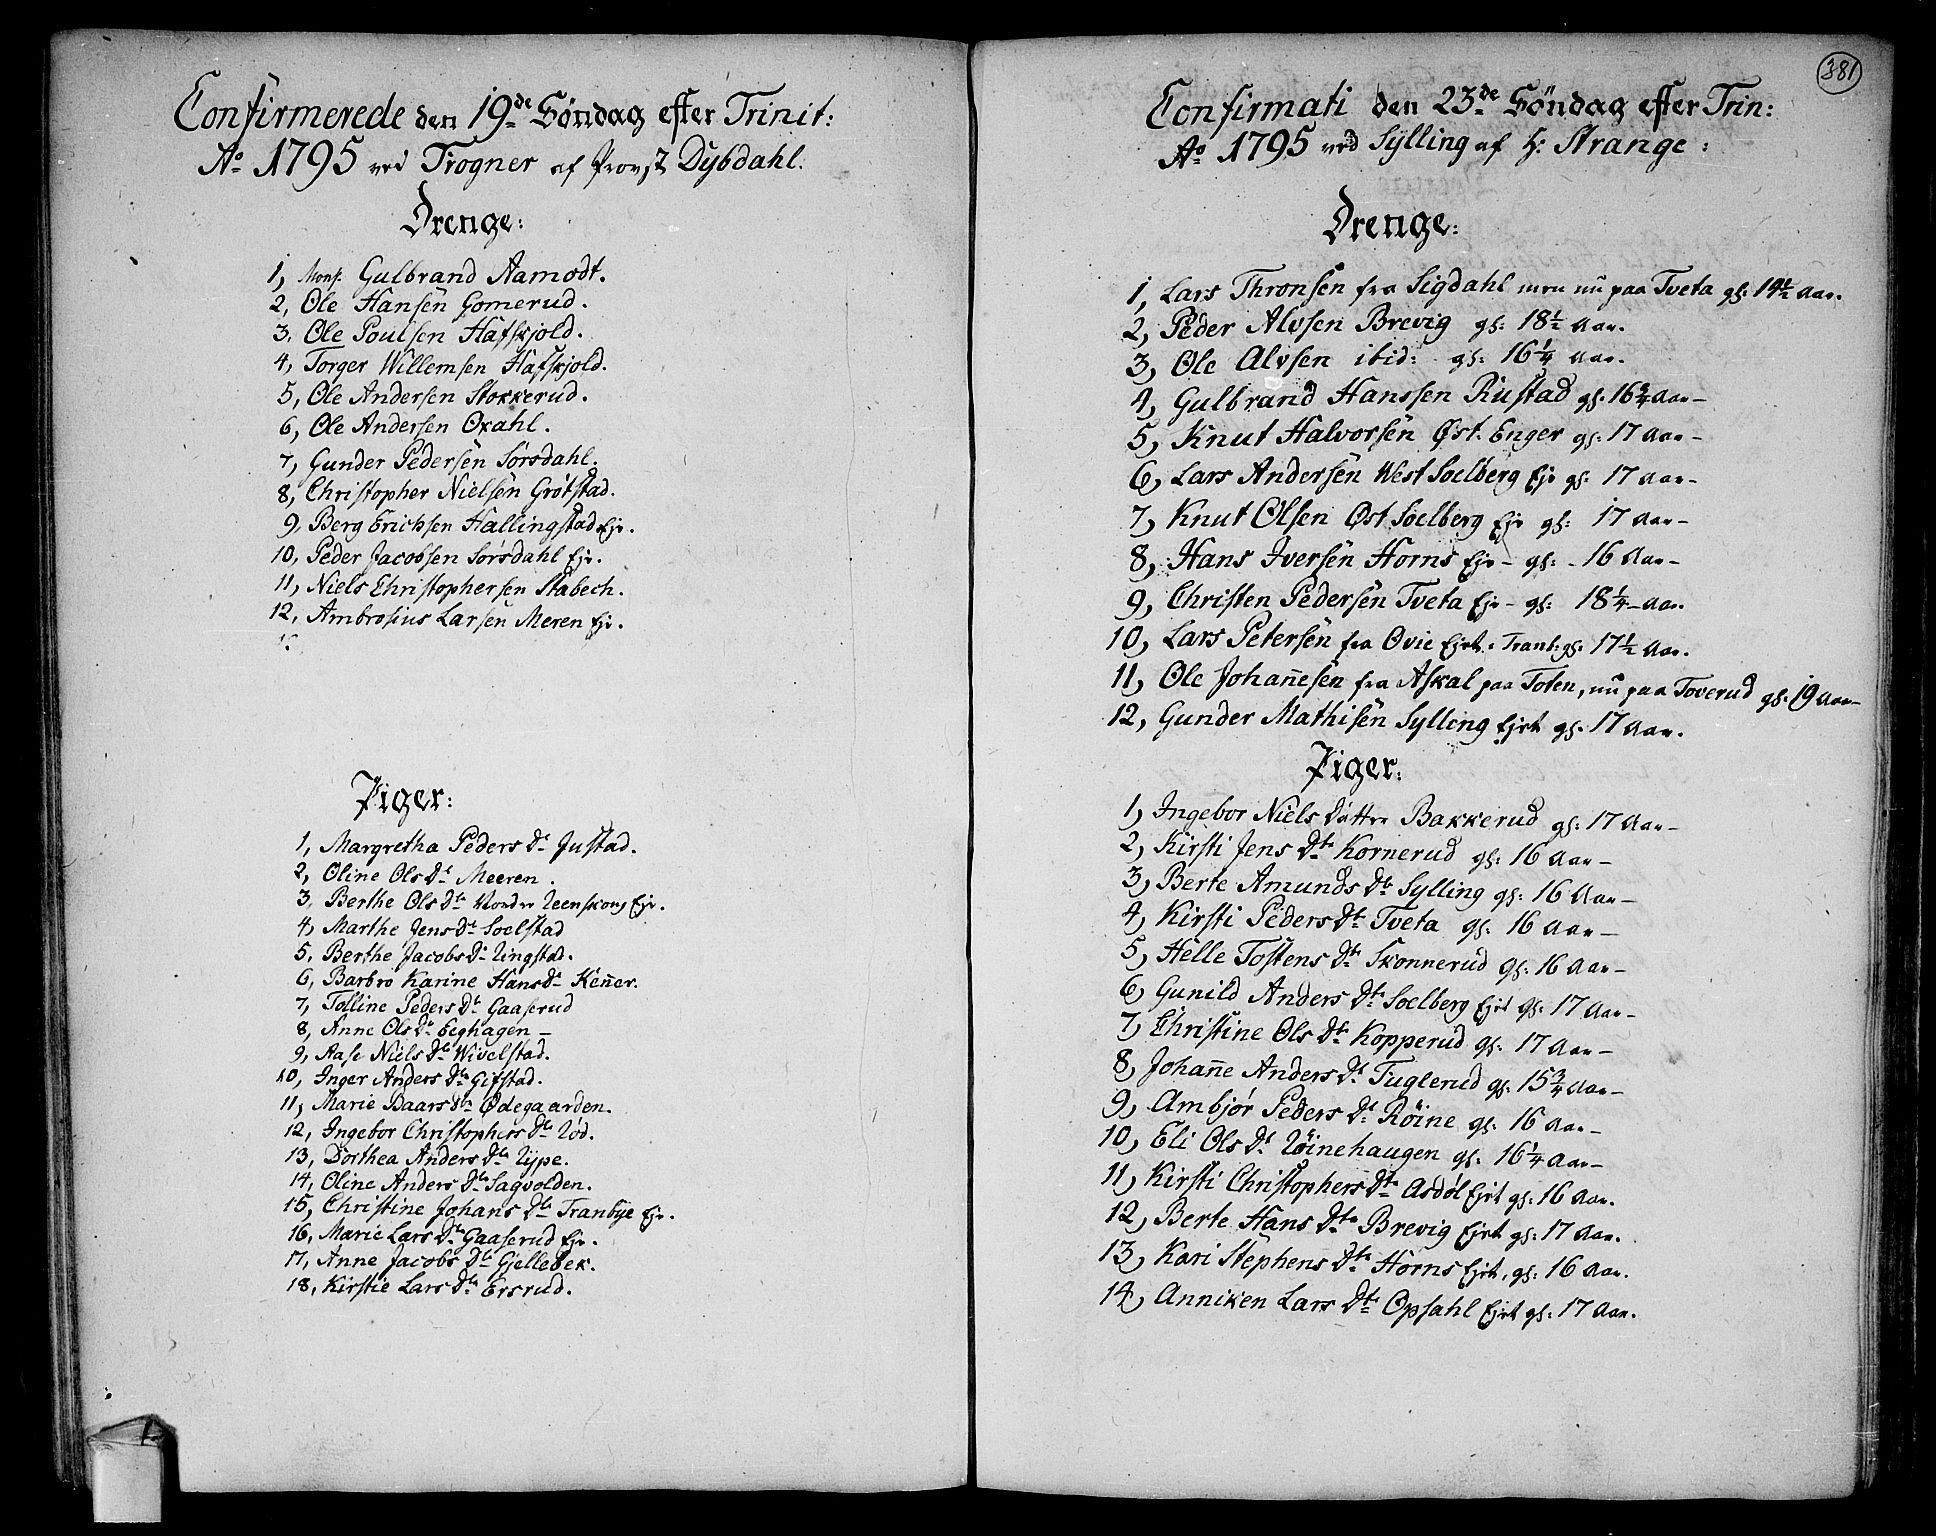 Confirmerede den 19de Söndag efter Trinit:
Ao 1795 ved Trogner af Provst Dybdahl.
Drenge:
1, Monsr. Gulbrand Aamodt.
2, Ole Hansen Gomerud.
3. Ole Poulsen Hafskjold.
4, Torger Willemsen Hafskjold.
5, Ole Andersen Stokkerud.
6, Ole Andersen Oxahl.
7, Gunder Pedersen Sørsdahl.
8, Christopher Nielsen Grøtstad.
9. Berg Erichsen Hallingstad Eje.
10, Peder Jacobsen Sørsdahl Eje.
11, Niels Christophersen Stabech.
12, Ambrosius Larsen Meren Eje.
Piger:
1, Margretha Peders Dr Justad.
2, Oline Ols Dr Meeren.
3, Berthe Ols Dtr Nordre Reenskoug Eje.
4, Marthe Jens Dr Soelstad
5. Berthe Jacobs Dr Ringstad.
6, Barbro Karine Hans Dr Keñer.
7, Tolline Peders Dtr Gaaserud
8, Anne Ols Dr Eeghagen –
9, Aase Niels Dtr Wivelstad.
10, Inger Anders Dtr Gifstad.
11, Marie Baars Dtr Ødegaarden.
12, Ingebor Christophers Dtr Rød.
13, Dorthea Anders Dtr Rype.
14, Oline Anders Dtr Sagvolden.
15, Christine Johans Dtr Tranbye Eje.
16, Marie Lars Dtr Gaaserud Eje.
17, Anne Jacobs Dtr Gjellebek.
18, Kirstie Lars Dtr Ersrud.
381
Confirmati den 23de Söndag efter Trin:
Ao 1795 ved Sylling af H: Strange:
Drenge:
1, Lars Thronsen fra Sigdahl men nu paa Tveta gl: 19½ Aar.
2, Peder Alvsen Brevig gl: 18½ Aar.
3, Ole Alvsen ibid: gl: 16¼ Aar.
4, Gulbrand Hanssen Rustad gl: 16¾ Aar –
5, Knut Halvorsen Øst: Enger gl: 17 Aar –
6, Lars Andersen West Soelberg Eje gl: 17 Aar –
7, Knut Olsen Øst Soelberg Eje gl: 17 Aar –
8, Hans Iversen Horns Eje – gl: - 16 Aar –
9, Christen Pedersen Tveta Eje – gl: 18¼ – Aar.
10, Lars Petersen fra Ovie Ejet. Tranb: gl: 17½ Aar.
11, Ole Johañesen fra Askal paa Toten, nu paa Toverud gl: 19 Aar –
12, Gunder Mathisen Sylling Ejet gl: 17 Aar.
Piger:
1, Ingebor Niels Datter Bakkerud gl: 17 Aar –
2, Kirsti Jens Dtr Kornerud gl: 16 Aar –
3, Berte Amunds Dtr Sylling gl: 16 Aar –
4, Kirsti Peders Dtr Tveta gl: 16 Aar –
5, Helle Tostens Dtr Skonnerud gl: 16 Aar –
6, Gunild Anders Dtr Soelberg Ejet gl: 17 Aar –
7, Christine Ols Dtr Kopperud gl: 17 Aar –
8, Johañe Anders Dtr Fuglerud gl: 15¾ Aar –
9, Ambjør Peders Dtr Röine gl: 16 Aar –
10, Eli Ols Dtr Röinehaugen gl: 16¼ Aar –
11, Kirsti Christophers Dtr Asdøl Ejet gl: 16 Aar.
12, Berte Hans Dtr Brevig Ejet gl: 17 Aar.
13, Kari Stephens Dtr Horns Ejet, gl: 16 Aar.
14, Anniken Lars Dtr Opsahl Ejet gl: 17 Aar.